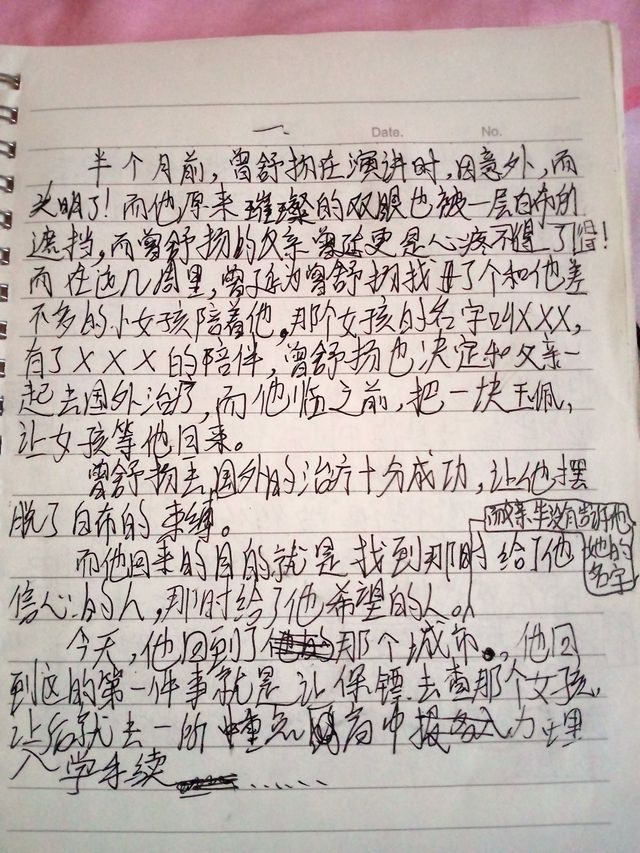 一、
Date.
No.
半个月前，曾舒扬在演讲时，因意外，而
失明了！而他原来璀璨的双眼也被一层白布所
遮挡，而曾舒扬的父亲曾延更是心疼不得了！
而在这几周里，曾延为曾舒扬找了个和他差
不多的小女孩陪着他，那个女孩的名字叫XXX，
有了XXX的陪伴，曾舒扬也决定和父亲一
起去国外治疗，而他临之前，把一块玉佩，
让女孩等他回来。
曾舒扬去国外的治疗十分成功，让他摆
脱了白布的束缚。
而他回来的目的就是找到那时给了他
信心的人，那时给了他希望的人。
而父亲、半没有告诉他
她的
名字
今天，他回到了那个城市。，他回
到这的第一件事就是让保镖去查那个女孩，
让后就去一所重点高中办理
入学手续……